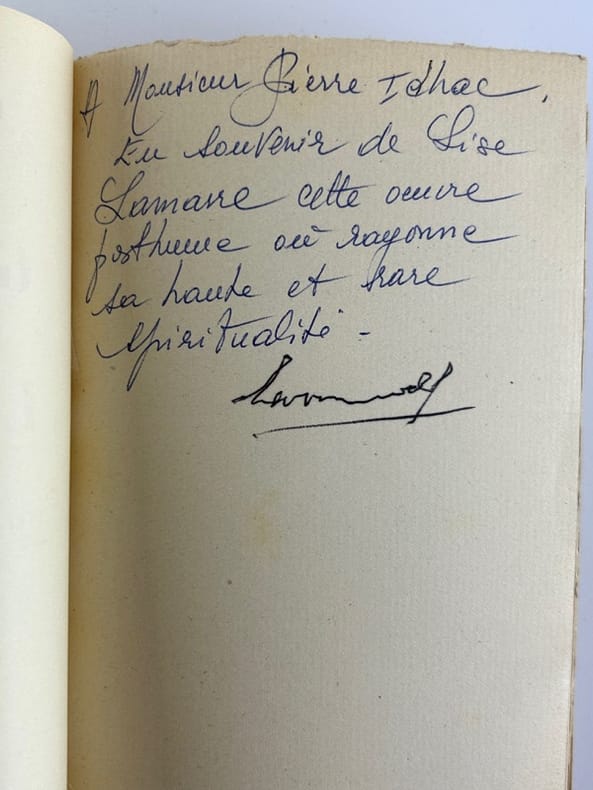 A Monsieur Pierre Idhac,
En souvenir de Lise
Lamarre cette oeuvre
posthume où rayonne
sa haute et rare
spiritualité -